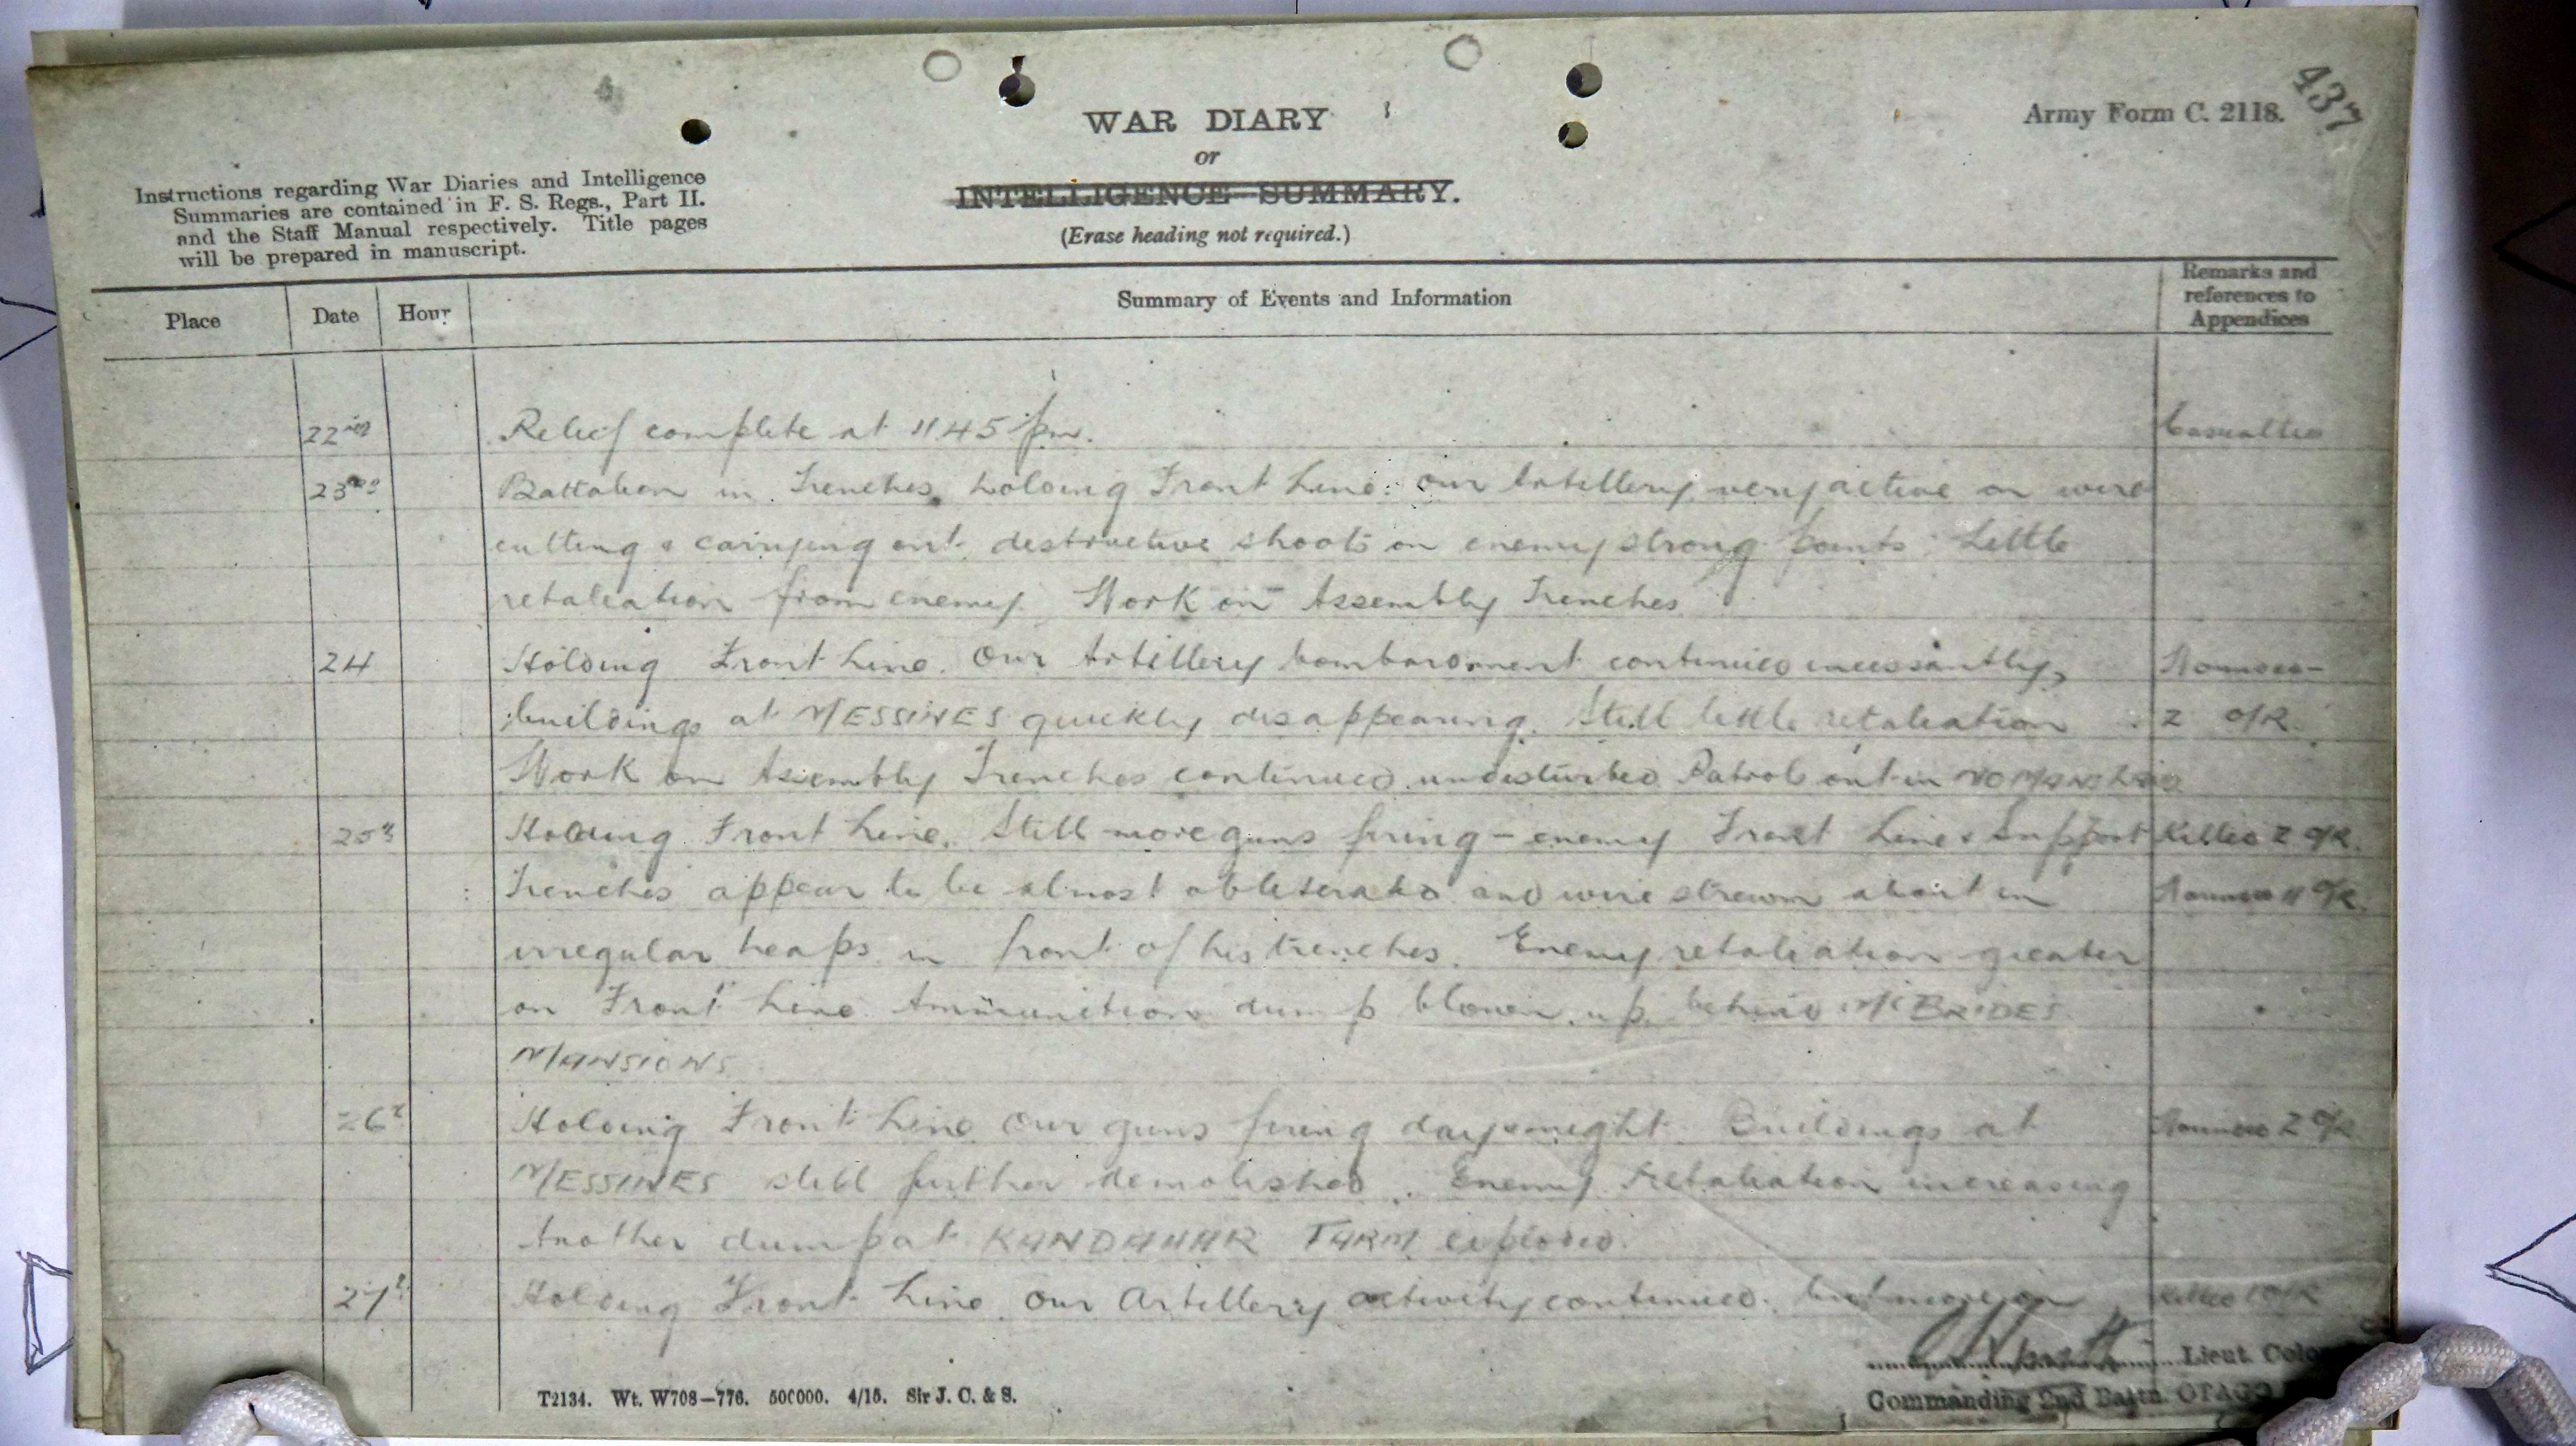 437
Army Form C. 2118.
WAR DIARY
or
INTELLIGENCE SUMMARY.
(Erase heading not required.)
Instructions regarding War Diaries and Intelligence
Summaries are contained in F. S. Regs., Part II.
and the Staff Manual respectively. Title pages
will be prepared in manuscript.
Place Date Hour Summary of Events and Information Remarks and references to Appendices
22nd Relief complete at 11 45 pm. Casualties
23rd Battalion in Trenches holding Front Line: Our Artillery very active on wire
cutting & carrying out destructive shoots on enemy strong points: Little
retaliation from enemy. Work on Assembly Trenches
24 Holding Front Line. Our Artillery bombardment continued incessantly, Wounded-
buildings at MESSINES quickly disappearing. Still little retaliation 2 O/R.
Work on Assembly Trenches continued undisturbed Patrols out in NO MANS LAND
25th Holding Front Line. Still more guns firing - enemy Front Line & Support Killed 2 O/R.
Trenches appear to be almost obliterated and wire strewn about in Wounded 11 O/R.
irregular heaps in front of his trenches. Enemy retaliation greater
on Front Line Ammunition dump blown up behind McBRIDES
MANSIONS
26th Holding Front Line Our guns firing day & night. Buildings at Wounded 2 O/R
MESSINES still further demolished. Enemy retaliation increasing
Another dump at KANDAHAR FARM exploded.
27th Holding Front Line. Our Artillery activity continued. but more on Killed 1 O/R
Lieut. Colo
Commanding 2nd Battn. OTAGO
T2134. Wt. W708-776. 500000. 4/15. Sir J. C. & S.